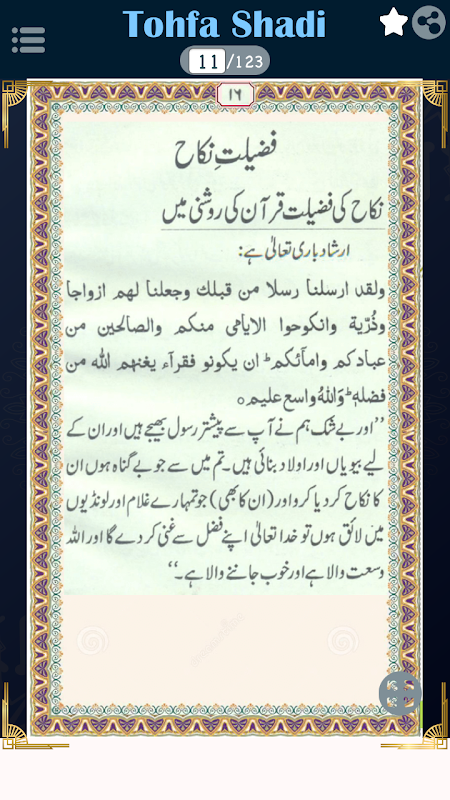 Tohfa Shadi
11/123
۱۶
فضیلتِ نکاح
نکاح کی فضیلت قرآن کی روشنی میں
ارشاد باری تعالیٰ ہے:
ولقد ارسلنا رسلا من قبلك وجعلنا لهم ازواجا
وذُرّية وانكوحوا الايامى منكم والصالحين من
عبادكم وامآئكم ط ان يكونو فقرآء يغنهم الله من
فضله ط وَاللهُ واسع عليم ○
’’اور بے شک ہم نے آپ سے پیشتر رسول بھیجے ہیں اور ان کے
لیے بیویاں اور اولاد بنائی ہیں۔ تم میں سے جو بے گناہ ہوں ان
کا نکاح کر دیا کرو اور (ان کا بھی) جو تمہارے غلام اور لونڈیوں
میں لائق ہوں تو خدا تعالیٰ اپنے فضل سے غنی کر دے گا اور اللہ
وسعت والا ہے اور خوب جاننے والا ہے۔‘‘